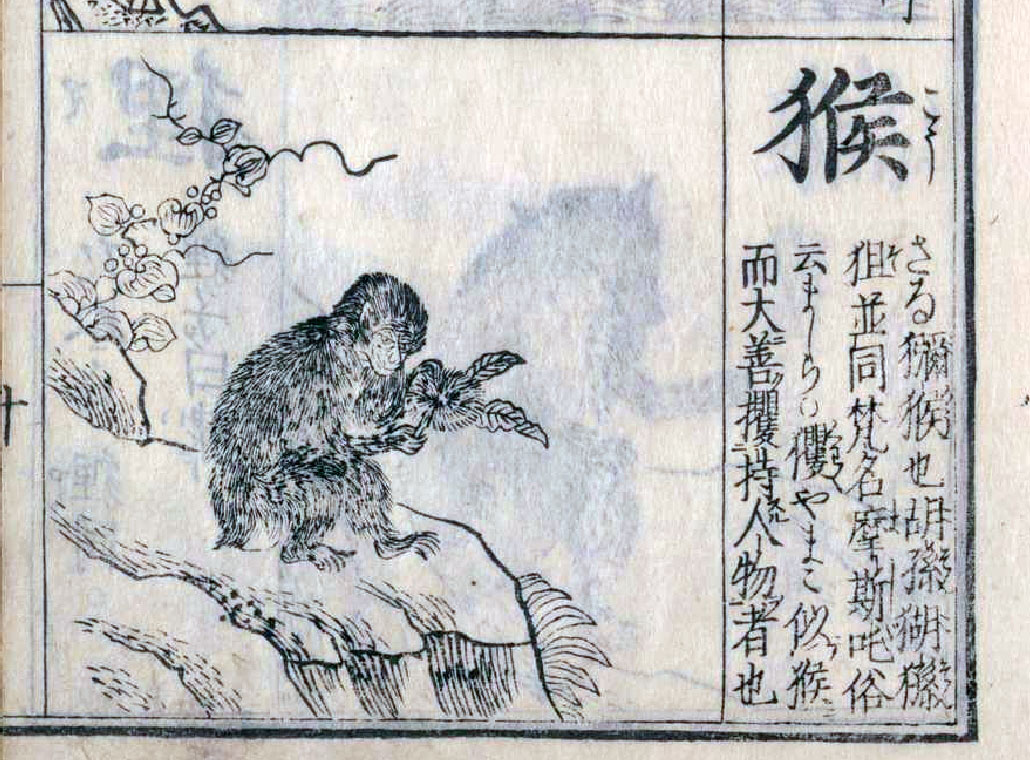 猴
こう
さる獼猴也胡孫猢猻
狙並同梵名摩斯吒俗
云ましら○玃やまこ似猴
而大善攫持人物者也
十